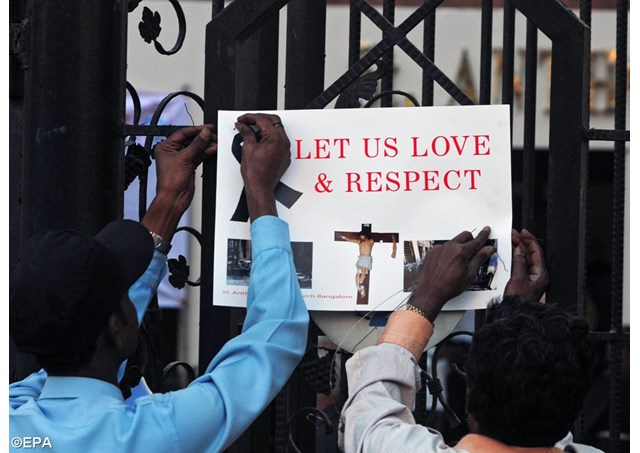 LET US LOVE
& RESPECT
St. Ant rch Bangalore
©EPA